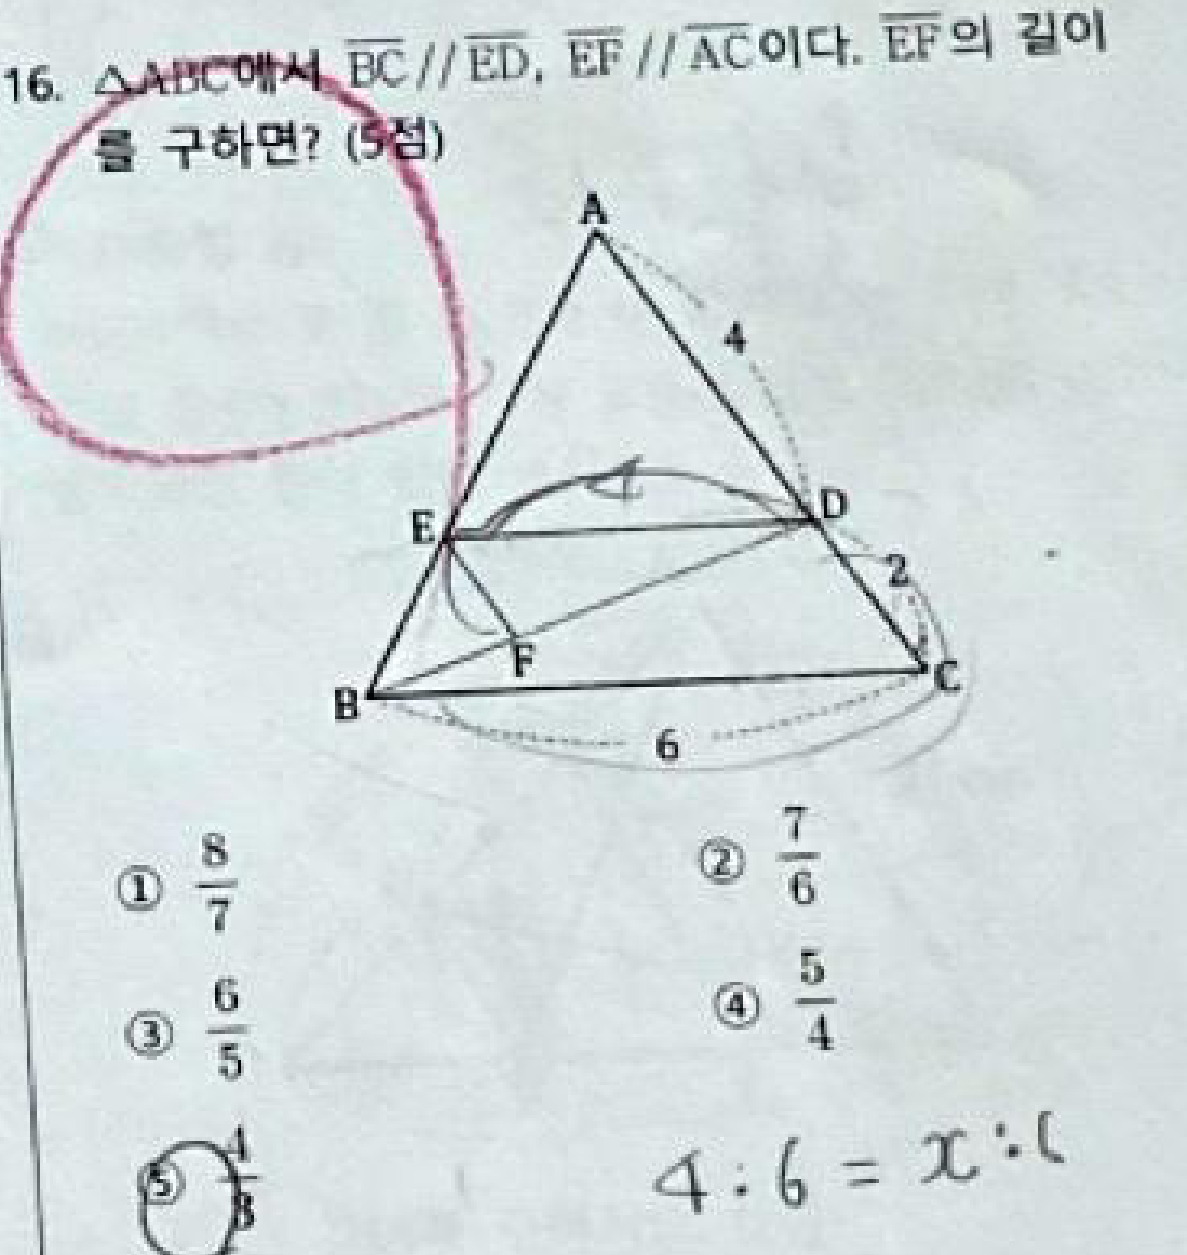 16. △ABC에서 BC//ED, EF//AC이다. EF의 길이
를 구하면? (5점)
A
4
4
E
D
2
F
B
C
6
① 8/7
② 7/6
③ 6/5
④ 5/4
⑤ 4/3
4:6=x:6